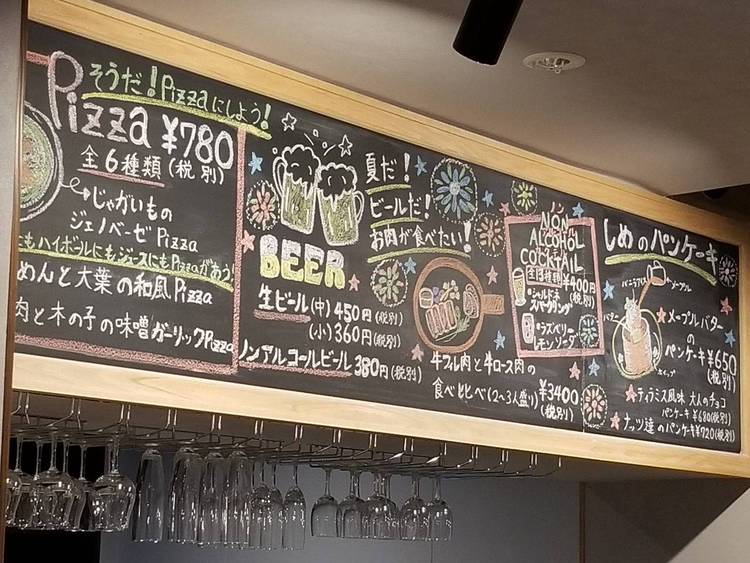 そうだ!Pizzaにしよう!
Pizza ¥780
全6種類(税別)
じゃがいもの
ジェノベーゼPizza
にもハイボールにもジュースにもPizzaがあう!
めんと大葉の和風Pizza
肉と木の子の味噌ガーリックPizza
BEER
生ビール(中)450円(税別)
(小)360円(税別)
ノンアルコールビール 380円(税別)
夏だ!
ビールだ!
お肉が食べたい!
牛フル肉と牛ロース肉の
食べ比べ(2〜3人盛り)
¥3400
(税別)
ノン
NON
ALCOHOL
COCKTAIL
¥400円
(税別)
シャルドネ
スパークリング
ラズベリー
レモンソーダ
しめのパンケーキ
メープル
バニラアイス
バナー
ホイップ
メープルバターの
パンケーキ¥650
(税別)
ティラミス風味 大人のチョコ
パンケーキ ¥680(税別)
ナッツ達のパンケーキ¥720(税別)